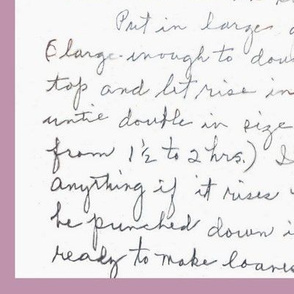 Put in large
(large enough to dou
top and let rise in
until double in size
from 1½ to 2 hrs.)
anything if it rises
be punched down i
ready to make loaves